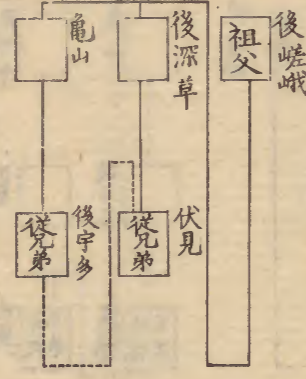 後嵯峨
祖父
後深草
亀山
伏見
従兄弟
後宇多
従兄弟